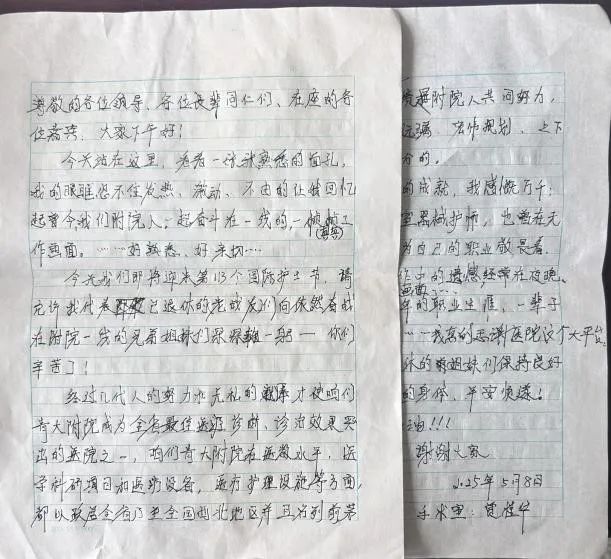 尊敬的各位领导、各位长辈同仁们、在座的各
位嘉宾，大家下午好！
今天站在这里，看着一张张熟悉的面孔，
我的眼睛忍不住发热、激动、不由的让我回忆
起曾今我们附院人一起奋斗在一线的，一帧帧工
作画面。……好熟悉、好亲切…
今天我们即将迎来第113个国际护士节，请
允许我代表已退休的老战友们向依然奋战
在附院一线的兄弟姐妹们深深鞠一躬——你们
辛苦了！
经过几代人的努力和无私的才使咱们
青大附院成为全省最佳医疗诊断，诊治效果突
出的医院之一，咱们青大附院在医教水平，医
学科研项目和医疗设备，还有护理设施等方面，
都以跃居全省乃至全国西北地区并且名列前茅
附院人共同努力，
宏伟规划、上下
分的。
的成就，我感慨万千；
护师，也曾在无
为自己的职业敬畏着
作中的遗憾经常在夜晚
画面……
年的职业生涯，一辈子
……我真的感谢医院这个大平台。
休的姐妹们保持良好
的身体，平安快乐！
油！！！
谢谢大家
2025年5月8日
手术室：